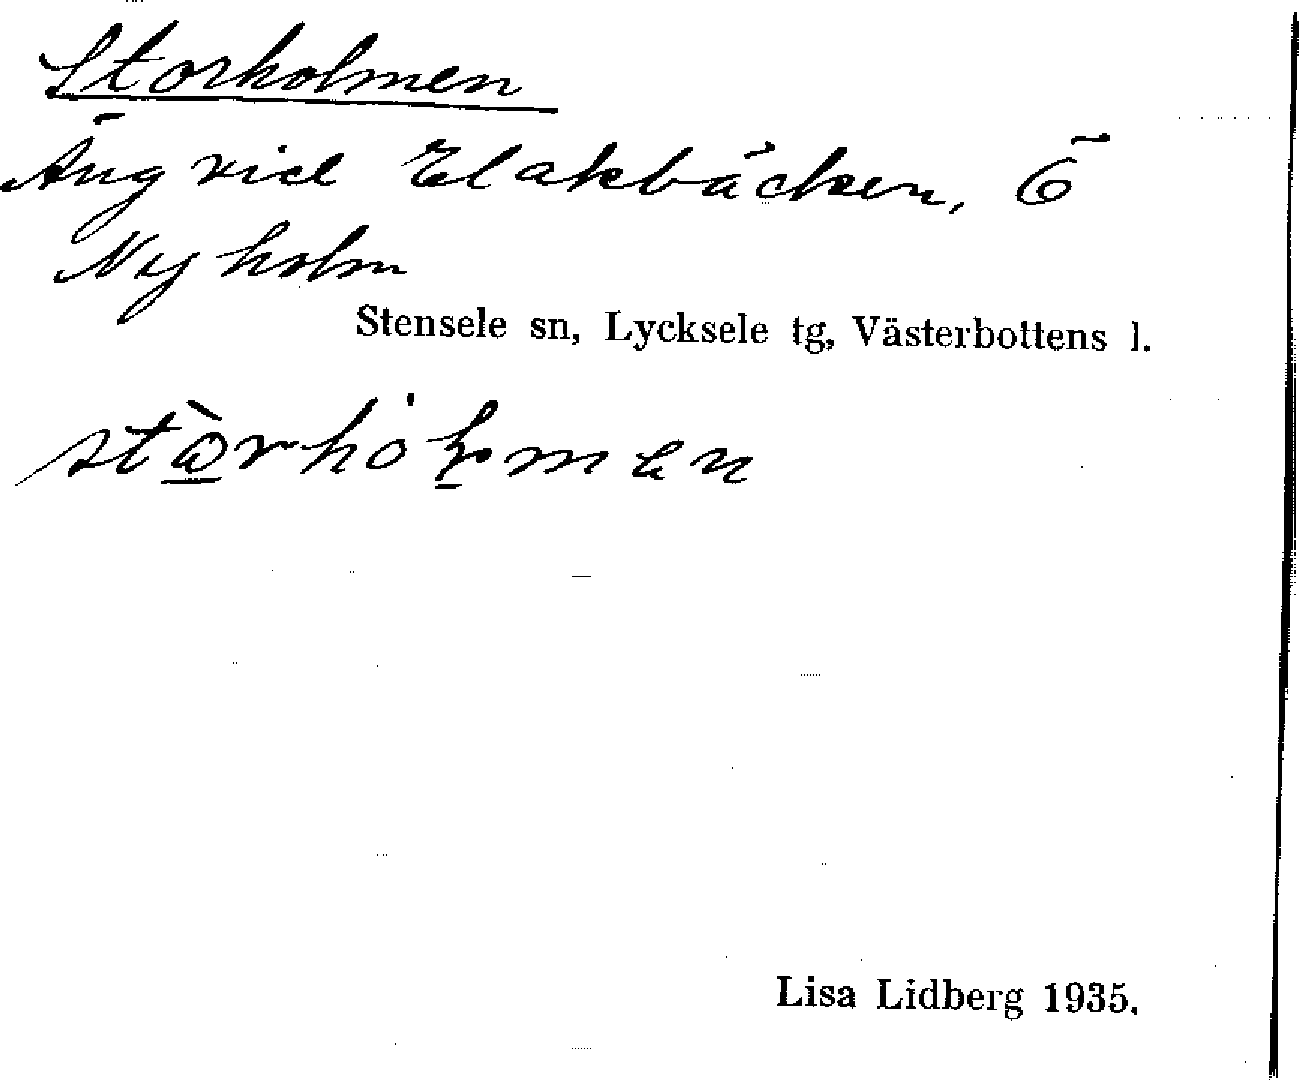 Storholmen
Äng vid Elakbäcken, Ö
Nyholm
Stensele sn, Lycksele tg, Västerbottens l.
Lisa Lidberg 1935.